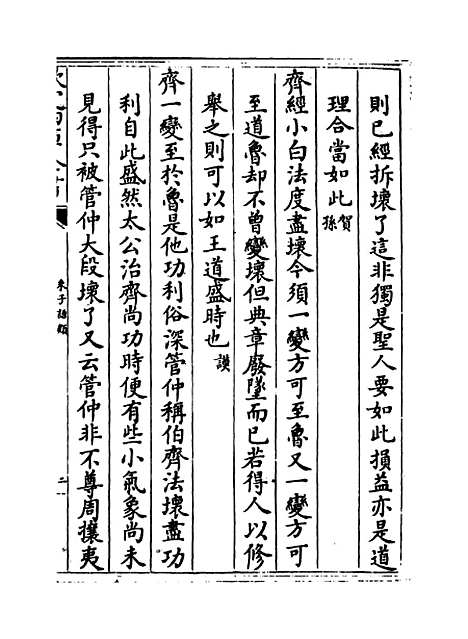 則已經拆壞了這非獨是聖人要如此損益亦是道
理合當如此賀孫
齊經小白法度盡壞今須一變方可至魯又一變方可
至道魯却不曾變壞但典章廢墜而已若得人以修
舉之則可以如王道盛時也謨
齊一變至於魯是他功利俗深管仲稱伯齊法壞盡功
利自此盛然太公治齊尚功時便有些小氣象尚未
見得只被管仲大段壞了又云管仲非不尊周攘夷
朱子語類